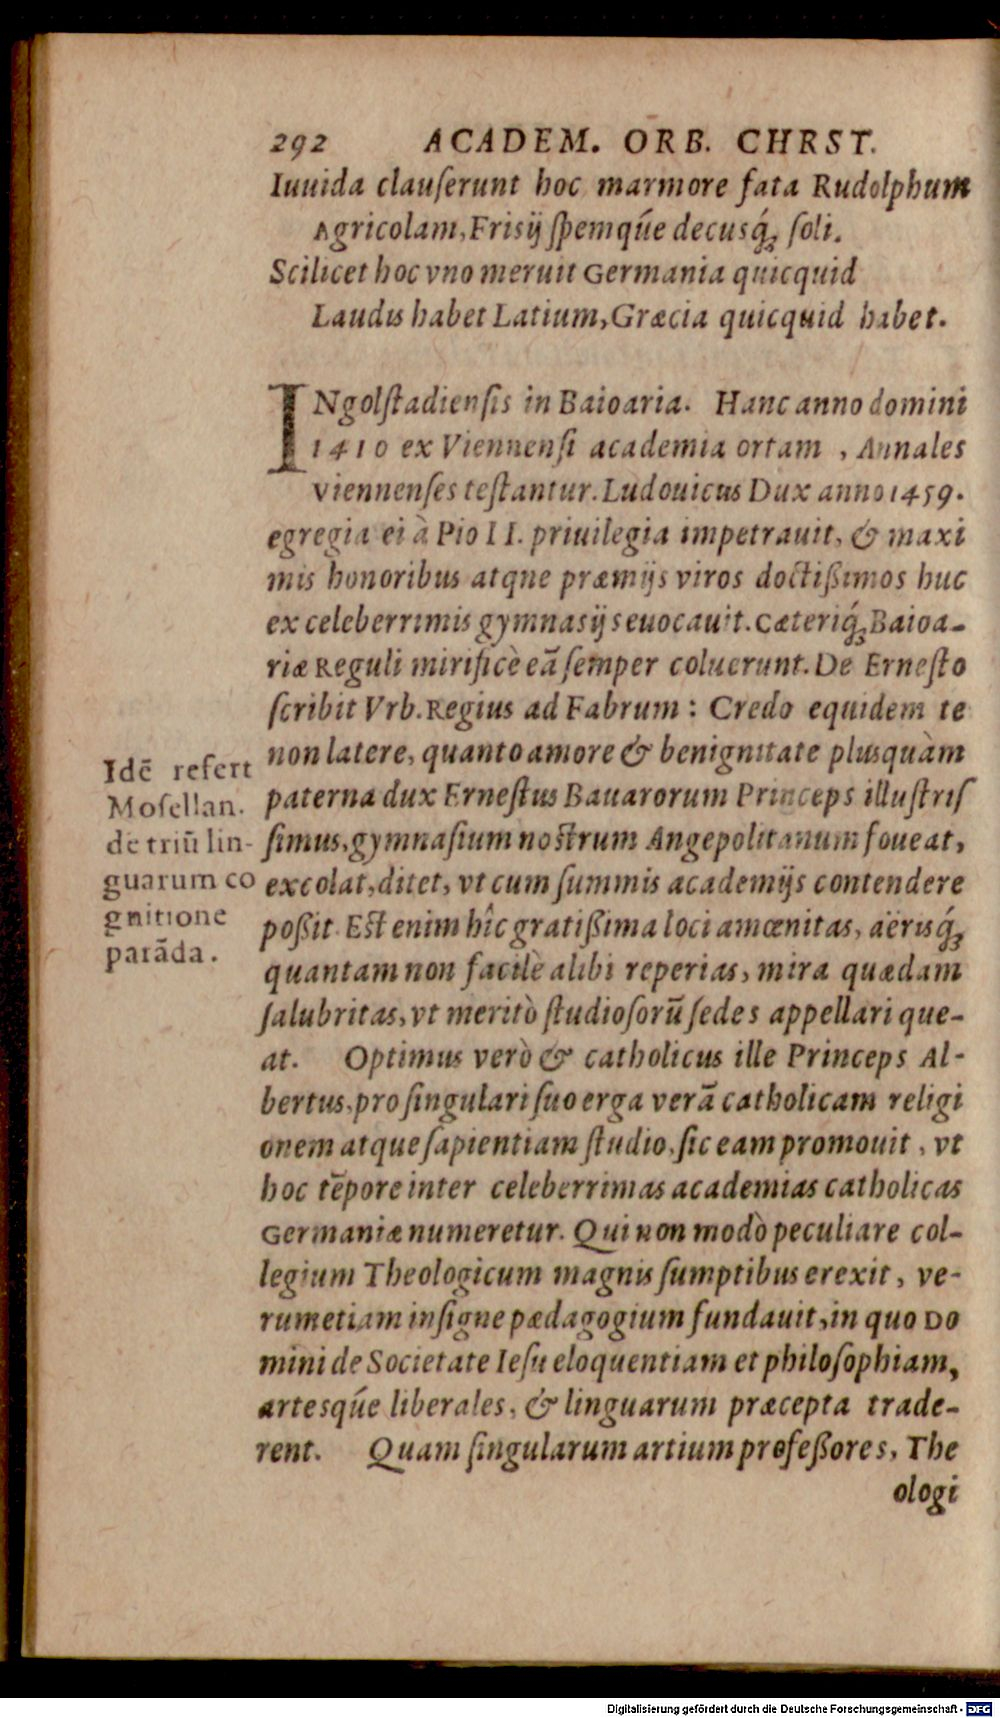 292 ACADEM. ORB. CHRST.
Iuuida clauſerunt hoc marmore fata Rudolphum
Agricolam, Friſij ſpemq́ue decusq́ꝫ ſoli.
Scilicet hoc vno meruit Germania quicquid
Laudis habet Latium, Græcia quicquid habet.
INgolſtadienſis in Baioaria. Hanc anno domini
1410 ex Viennenſi academia ortam , Annales
viennenſes teſtantur. Ludouicus Dux anno 1459.
egregia ei à Pio II. priuilegia impetrauit, & maxi
mis honoribus atqne præmijs viros doctißimos huc
ex celeberrimis gymnasijs euocauit. Cæteriq́ꝫ Baioa-
riæ Reguli mirificè eā ſemper coluerunt. De Erneſto
ſcribit Vrb. Regius ad Fabrum : Credo equidem te
non latere, quanto amore & benignitate plusquàm
paterna dux Erneſtus Bauarorum Princeps illuſtriſ
ſimus, gymnaſium noſtrum Angepolitanum foueat,
excolat, ditet, vt cum ſummis academijs contendere
poßit. Eſt enim hîc gratißima loci amœnitas, aërisq́ꝫ
quantam non facilè alibi reperias, mira quædam
ſalubritas, vt meritò ſtudioſorū ſedes appellari que-
at. Optimus verò & catholicus ille Princeps Al-
bertus, pro ſingulari ſuo erga verā catholicam religi
onem atque ſapientiam ſtudio, ſic eam promouit , vt
hoc tēpore inter celeberrimas academias catholicas
Germaniæ numeretur. Qui non modò peculiare col-
legium Theologicum magnis ſumptibus erexit, ve-
rumetiam inſigne pædagogium fundauit, in quo Do
mini de Societate Ieſu eloquentiam et philoſophiam,
artesq́ue liberales, & linguarum præcepta trade-
rent. Quam ſingularum artium profeßores, The
ologi
Idē refert
Moſellan.
de triū lin-
guarum co
gnitione
parāda.
Digitalisierung gefördert durch die Deutsche Forschungsgemeinschaft - DFG